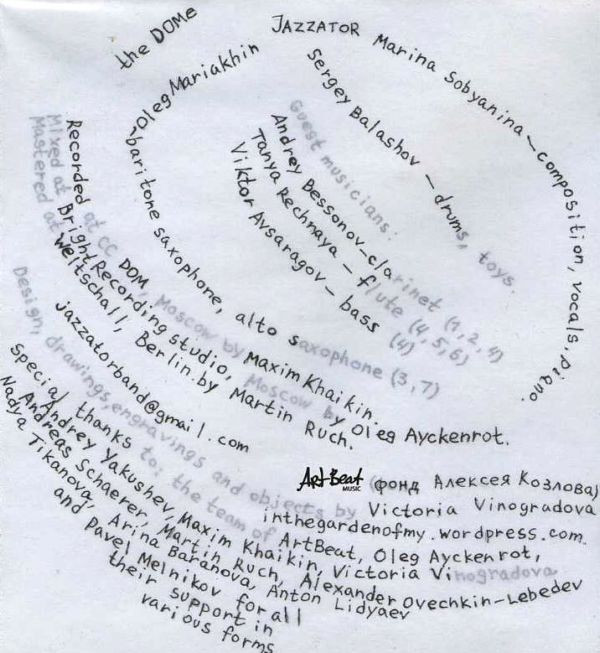 the DOMe
JAZZATOR
Marina Sobyanina – composition, vocals, piano.
Oleg Mariakhin
– baritone saxophone, alto saxophone (3,7)
Sergey Balashov – drums, toys
Guest musicians:
Andrey Bessonov – clarinet (1,2,4)
Tanya Rechnaya – flute (4,5,6)
Viktor Avsaragov – bass (4)
Recorded at CC DOM, Moscow by Maxim Khaikin.
Mixed at Bright Recording studio, Moscow by Oleg Ayckenrot.
Mastered at Weltschall, Berlin by Martin Ruch.
jazzatorband@gmail.com
Art Beat MUSIC (фонд Алексея Козлова)
Design, drawings, engravings and objects by Victoria Vinogradova
inthegardenofmy.wordpress.com
Special thanks to: the team of ArtBeat, Oleg Ayckenrot,
Andrey Yakushev, Maxim Khaikin, Victoria Vinogradova
Andreas Schaerer, Martin Ruch, Alexander Ovechkin-Lebedev
Nadya Tikanova, Arina Baranova, Anton Lidyaev
and Pavel Melnikov for all
their support in
various forms